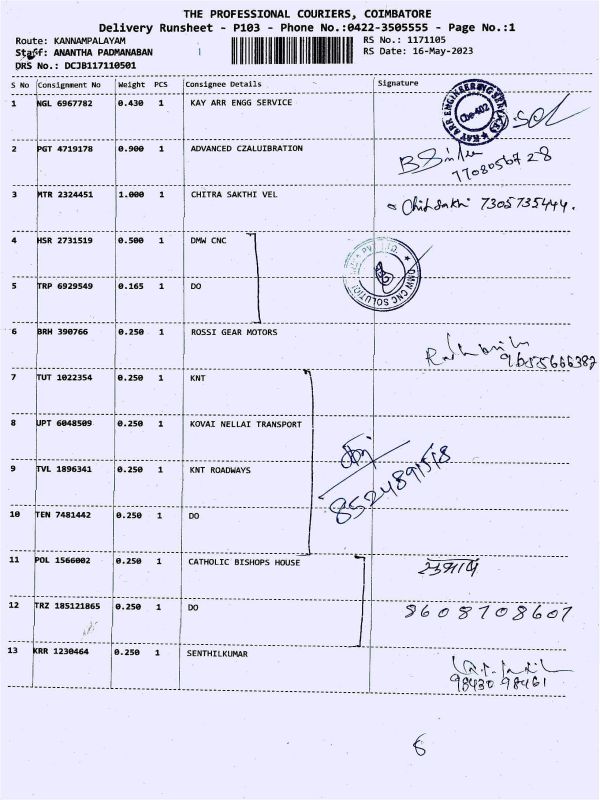 THE PROFESSIONAL COURIERS, COIMBATORE
Delivery Runsheet - P103 - Phone No.:0422-3505555 - Page No.:1
Route: KANNAMPALAYAM RS No.: 1171105
Staff: ANANTHA PADMANABAN RS Date: 16-May-2023
DRS No.: DCJB117110501
S No Consignment No Weight PCS Consignee Details Signature
1 NGL 6967782 0.430 1 KAY ARR ENGG SERVICE
KAY ARR ENGINEERING SERVICES
Cbe-402
2 PGT 4719178 0.900 1 ADVANCED CZALUIBRATION
7708056728
3 MTR 2324451 1.000 1 CHITRA SAKTHI VEL
7305735444.
4 HSR 2731519 0.500 1 DMW CNC
DMW CNC SOLUTIONS
5 TRP 6929549 0.165 1 DO
6 BRH 390766 0.250 1 ROSSI GEAR MOTORS
9655566382
7 TUT 1022354 0.250 1 KNT
8 UPT 6048509 0.250 1 KOVAI NELLAI TRANSPORT
9 TVL 1896341 0.250 1 KNT ROADWAYS
10 TEN 7481442 0.250 1 DO
11 POL 1566002 0.250 1 CATHOLIC BISHOPS HOUSE
12 TRZ 185121865 0.250 1 DO
8608708607
13 KRR 1230464 0.250 1 SENTHILKUMAR
98430 98461